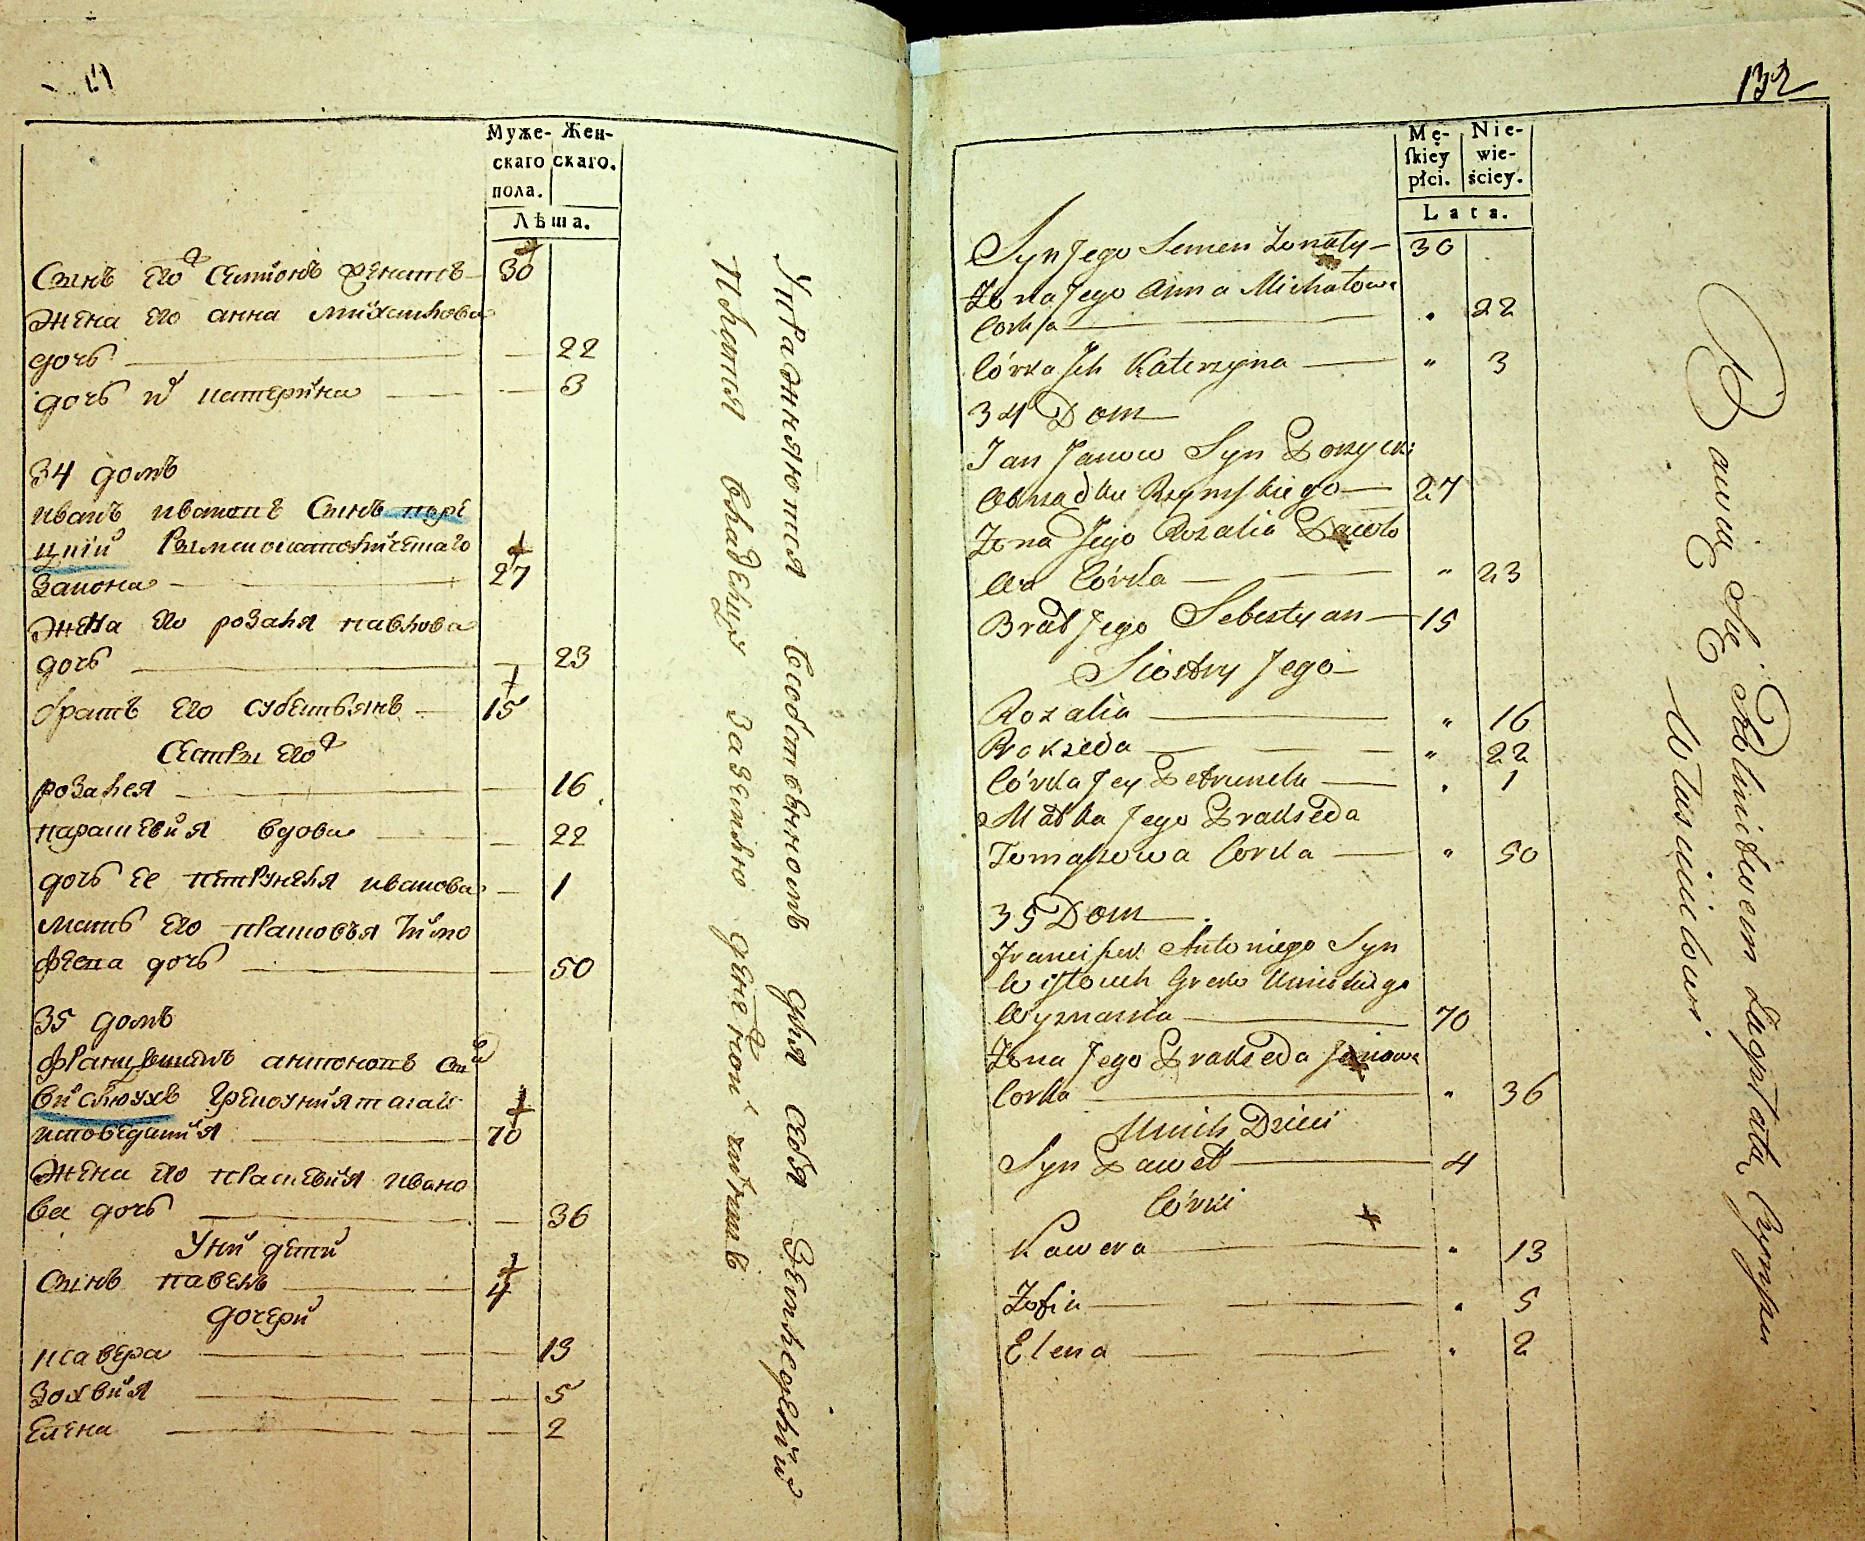 Муже-
скаго
пола.
Жен-
скаго.
Лѣта.
Сынъ его Семионъ женатъ 30
Жена его анна михайлова
дочъ 22
дочъ их катерина 3
34 домъ
иванъ ивановъ Сынъ
Римскокатолическаго
закона 27
Жена его розаля павлова
дочъ 23
братъ его субестьянъ 15
Сестры его
розалея 16
парашевия вдова 22
дочъ ее петрунеля иванова 1
мать его прасовья
дочъ 50
35 домъ
францишекъ антоновъ сы
вислоухъ грекоуниятскаго
исповедания 70
Жена его прасцевия ивано
ва дочъ 36
У них дети
Сынъ павелъ 4
дочери
ксавера 13
зохвия 5
елена 2
Упражняются собственномъ для себя земледелии
Платя владельцу за землю денежной чиншъ
132
Mę-
skiey
płci.
Nie-
wie-
ściey.
Lata.
Syn Jego Semen Żonaty 30
Żona Jego Anna Michałowa
Corka " 22
Córka Jch Katerzyna " 3
34 Dom
Jan Janow Syn Porzycki
Obrządku Rzymskiego 27
Żona Jego Rozalia Pawło
wa Córka " 23
Brat Jego Sebestyan 15
Siostry Jego
Rozalia " 16
Prakseda " 22
Córka Jey Petrunela " 1
Matka Jego Prakseda
Tomaszowa Corka " 50
35 Dom
Franciszek Antoniego Syn
Wisłouch Greko Unickiego
Wyznania 70
Żona Jego Prakseda Janowa
Corka " 36
U nich Dzieci
Syn Paweł 4
Córki
Xawera " 13
Zofia " 5
Elena " 2
Bawią Się Rolnictwem Zapłatą Czynszu
Właścicielowi